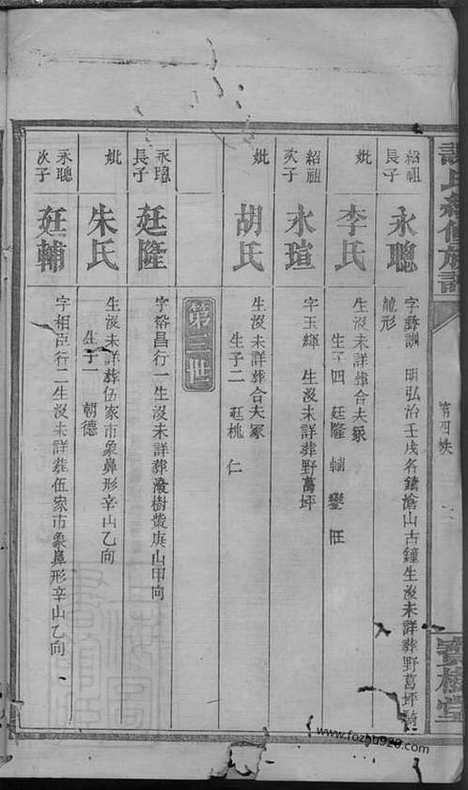 氏續修族譜
紹祖
長子
永聰
字彝訓 明弘治壬戌名鑄滄山古鐘生沒未詳葬野葛坪
龍形
妣
李氏
生沒未詳葬合夫冢
生子四 廷隆 輔 鑾 旺
紹祖
次子
永瑄
字玉輝 生沒未詳葬野葛坪
妣
胡氏
生沒未詳葬合夫冢
生子二 廷桃 仁
第三世
永聰
長子
廷隆
字裕昌行一生沒未詳葬 樹 庚山甲向
妣
朱氏
生沒未詳葬伍家市象鼻形辛山乙向
生子一 朝德
永聰
次子
廷輔
字相臣行二生沒未詳葬伍家市象鼻形辛山乙向
寶樹堂
www.fozhu920.com